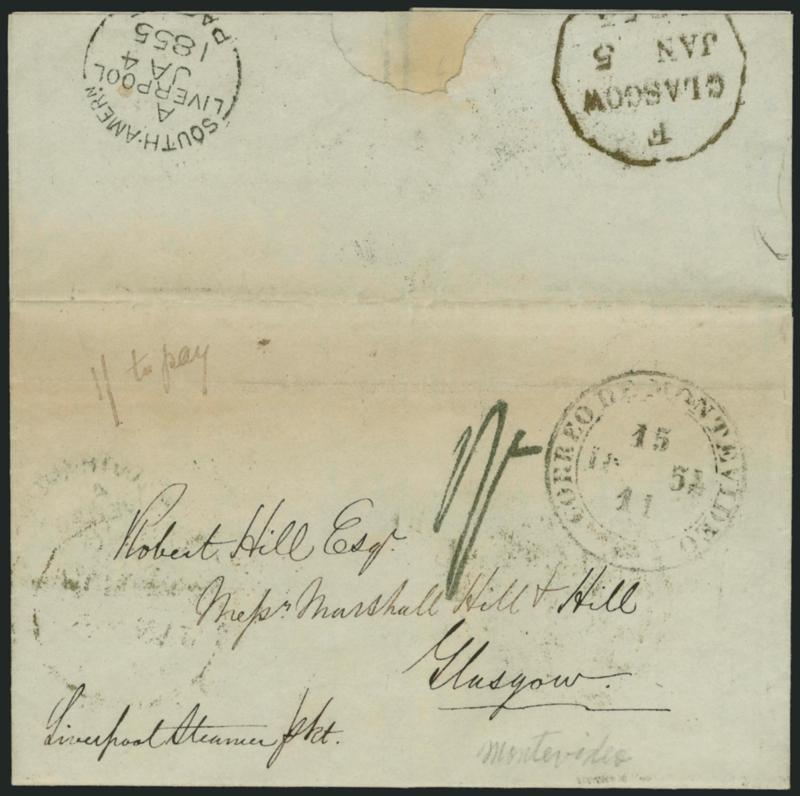 SOUTH·AMERN. PA
LIVERPOOL
A
JA 4
1855
F
GLASGOW
JAN 5
1/ to pay
1/-
CORREO DE MONTEVIDEO
15
11
54
Robert Hill Esqr.
Messrs. Marshall Hill & Hill
Glasgow.
Liverpool Steamer pkt.
Montevideo